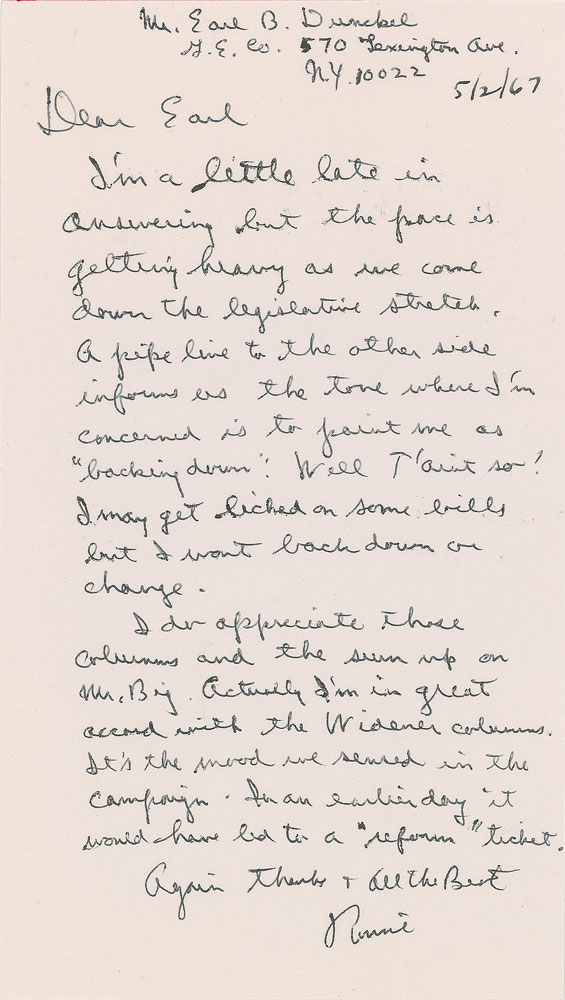 Mr. Earl B. Dunckel
G.E. Co. 570 Lexington Ave.
N.Y. 10022
5/2/67
Dear Earl
I'm a little late in
answering but the pace is
getting heavy as we come
down the legislative stretch.
A pipe line to the other side
informs us the tone where I'm
concerned is to paint me as
"backing down". Well T'aint so!
I may get licked on some bills
but I wont back down or
change.
I do appreciate those
columns and the sum up on
Mr. Big. Actually I'm in great
accord with the Widener columns.
It's the mood we sensed in the
campaign. In an earlier day it
would have led to a "reform" ticket.
Again Thanks & All the Best
Ronnie